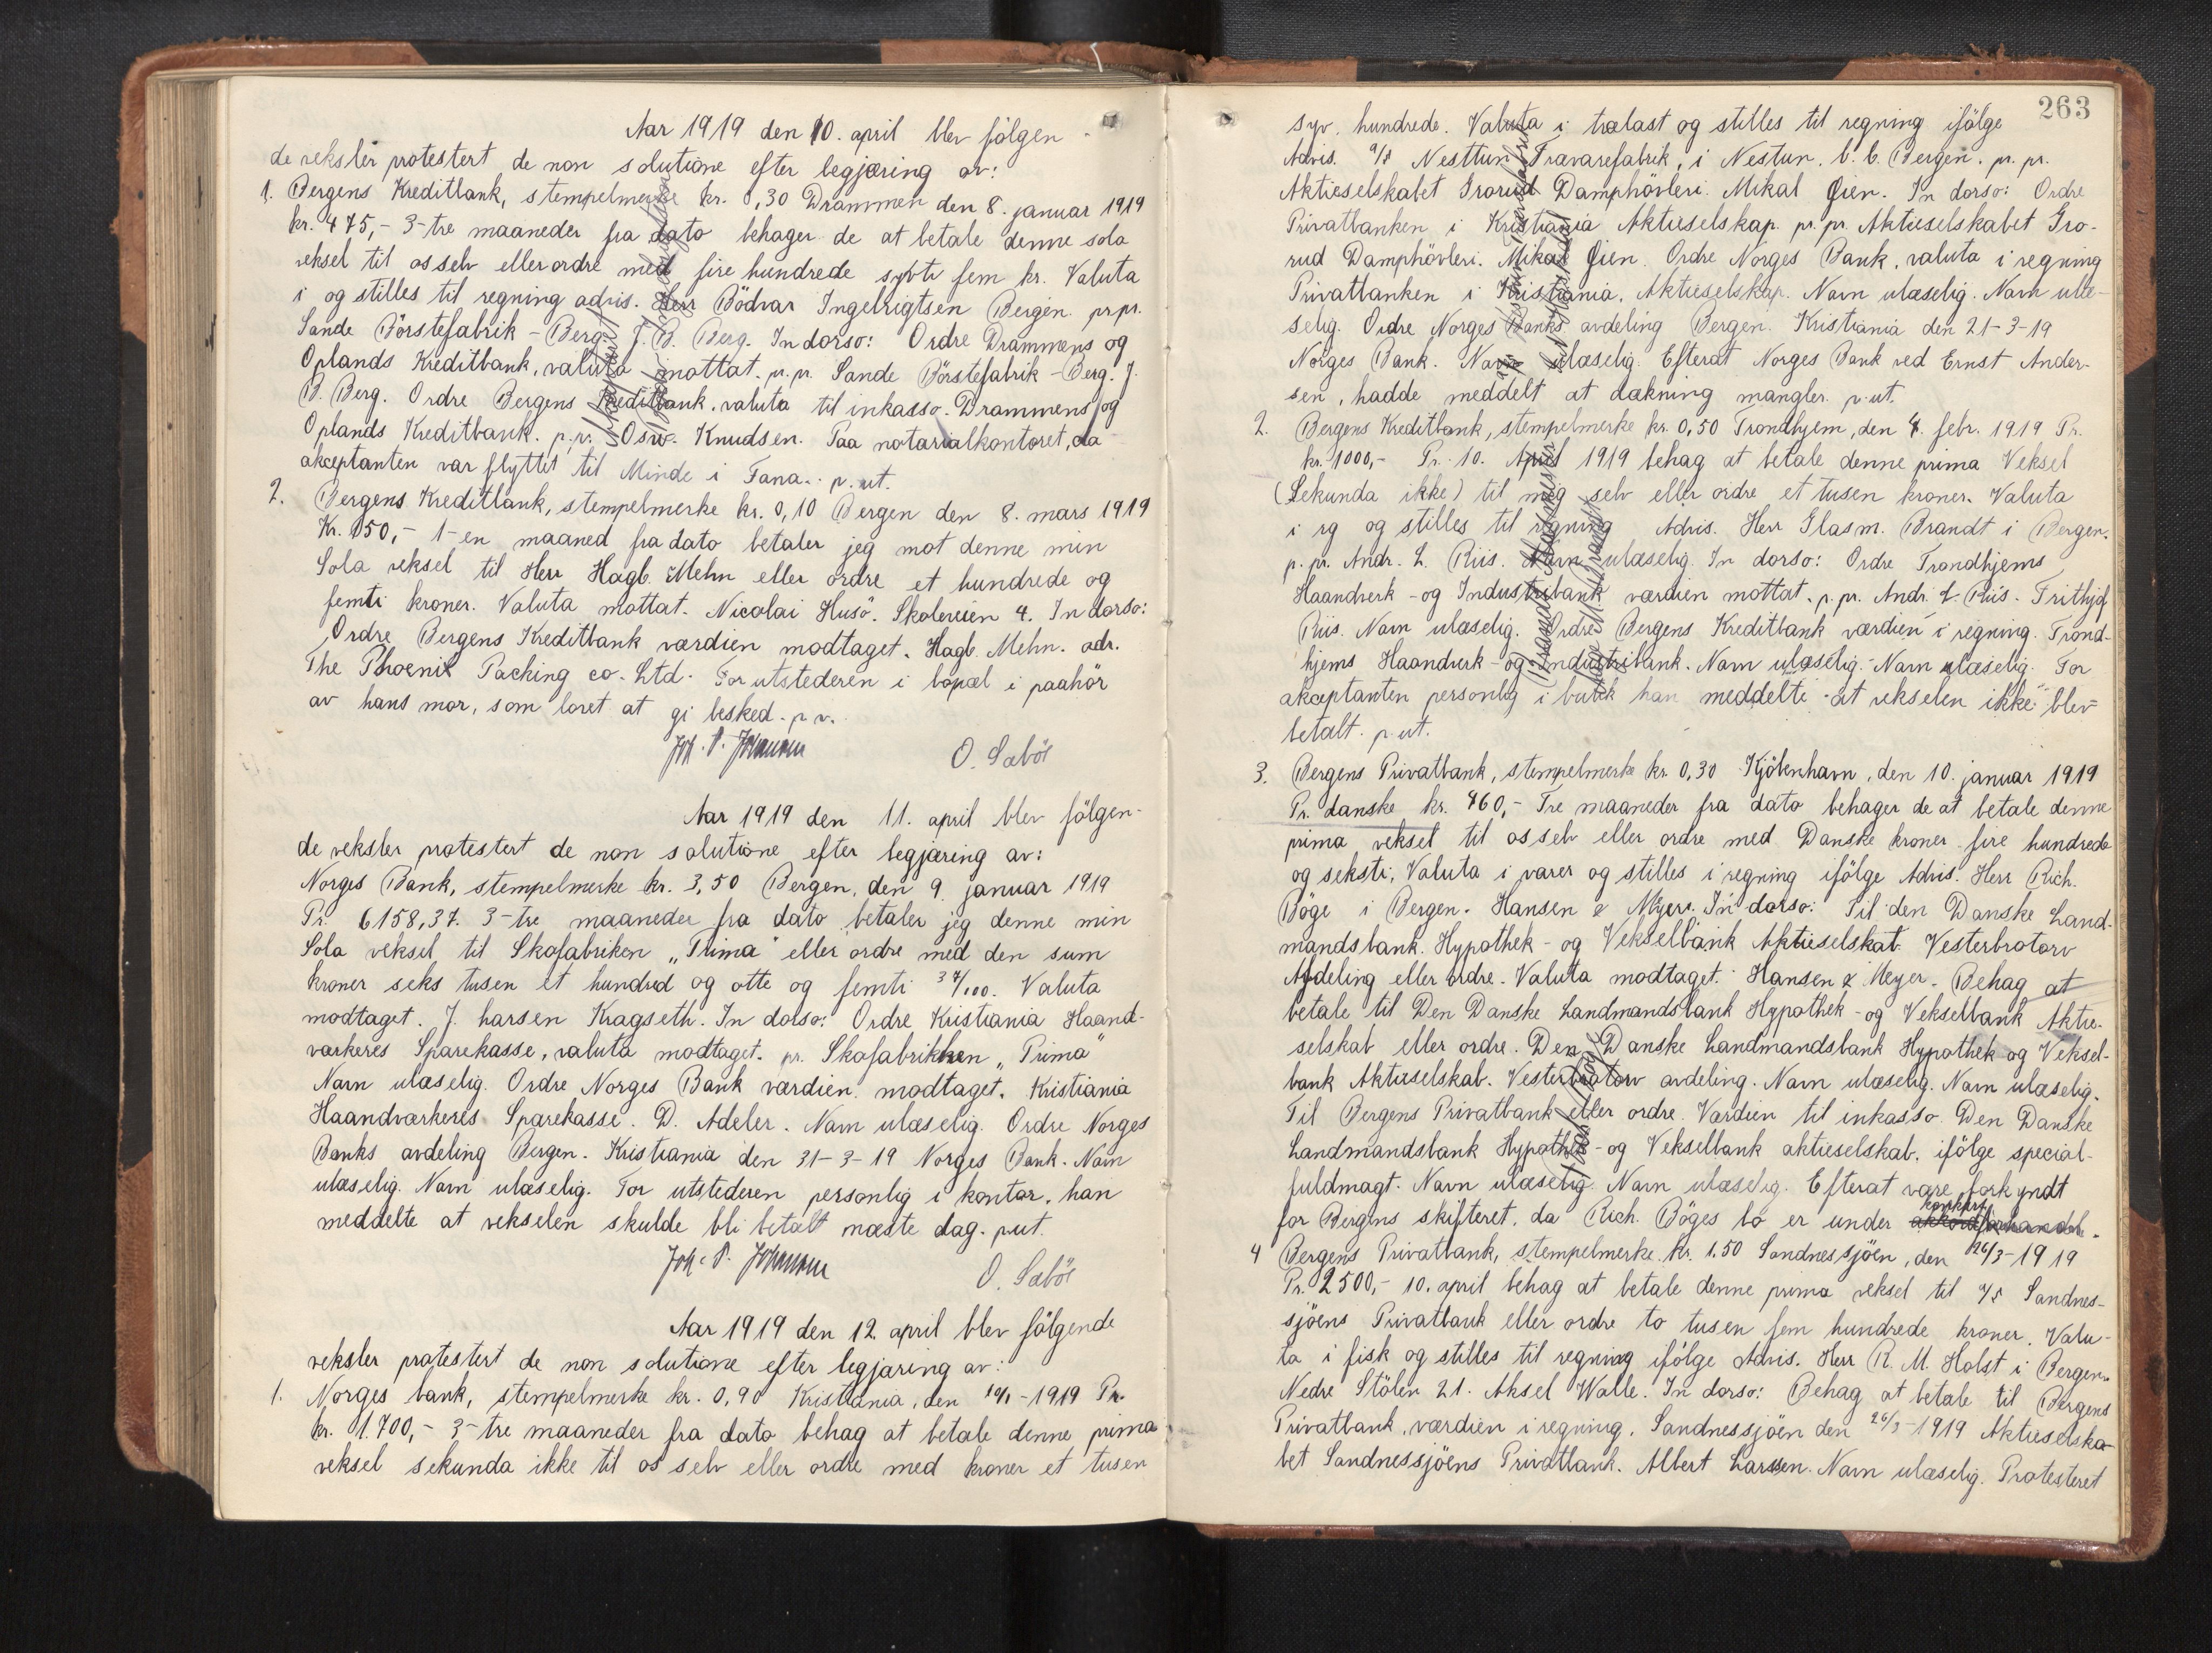 Aar 1919 den 10. april blev følgen-
de veksler protestert de non solutione efter begjæring av:
1. Bergens Kreditbank, stempelmerke kr. 0,30 Drammen den 8. januar 1919
kr. 475,- 3-tre maaneder fra dato behager de at betale denne sola
veksel til os selv eller ordre med fire hundrede sytti fem kr. Valuta
i og stilles til regning advis. Herr Bödvar Ingebrigtsen Bergen. pr pr.
Sande Börstefabrik - Berg J. B. Berg. In dorso: Ordre Drammens og
Oplands Kreditbank, valuta mottat. pr. pr. Sande Börstefabrik - Berg. J.
B. Berg. Ordre Bergens Kreditbank. valuta til inkasso. Drammens og
Oplands Kreditbank. p.pr. Osw. Knudsen. Paa notarialkontoret, da
akceptanten var flyttet til Minde i Fana. p. ut.
2. Bergens Kreditbank, stempelmerke kr. 0,10 Bergen den 8. mars 1919
Kr. 150,- 1-en maaned fra dato betaler jeg mot denne min
Sola veksel til Herr Hagb. Mehn eller ordre et hundrede og
femti kroner. Valuta mottat. Nicolai Husö. Skoleveien 4. In dorso:
Ordre Bergens Kreditbank værdien modtaget. Hagb. Mehn. adr.
The Phoenix Packing co. Ltd. For utstederen i bopæl i paahör
av hans mor, som lovet at gi besked. p. v.
O. Sæböe
Aar 1919 den 11. april blev fölgen-
de veksler protestert de non solutione efter begjæring av:
Norges Bank, stempelmerke kr. 3,50 Bergen, den 9. januar 1919
Pr. 6158,37. 3-tre maaneder fra dato betaler jeg denne min
Sola veksel til Skofabriken „Prima" eller ordre med den sum
kroner seks tusen et hundred og otte og femti 37/100. Valuta
modtaget. J. Larsen Kragseth. In dorso: Ordre Kristiania Haand-
værkeres Sparekasse, valuta modtaget. pr. Skofabrikken „Prima"
Navn ulæselig. Ordre Norges Bank værdien modtaget. Kristiania
Haandværkeres Sparekasse. D. Adeler. Navn ulæselig. Ordre Norges
Banks avdeling Bergen. Kristiania den 31-3-19 Norges Bank. Navn
ulæselig. Navn ulæselig. For utstederen personlig i kontor, han
meddelte at vekselen skulde bli betalt næste dag. p.ut.
O. Sæböe
Aar 1919 den 12. april blev fölgende
veksler protestert de non solutione efter begjæring av:
1. Norges bank, stempelmerke kr. 0,90 Kristiania, den 10/1-1919 Pr.
kr. 1.700,- 3-tre maaneder fra dato behag at betale denne prima
veksel sekunda ikke til os selv eller ordre med kroner et tusen
263
syv hundrede. Valuta i trælast og stilles til regning ifölge
Advis. A/S Nesttun Trævarefabrik, i Nestun. b. b. Bergen. pr. pr.
Aktieselskabet Grorud Damphövleri. Mikal Øien. In dorso: Ordre
Privatbanken i Kristiania Aktieselskap. pr. pr. Aktieselskabet Gro-
rud Damphövleri. Mikal Øien. Ordre Norges Bank. valuta i regning
Privatbanken i Kristiania. Aktieselskap. Navn ulæselig. Navn ulæ-
selig. Ordre Norges Banks avdeling Bergen. Kristiania den 21-3-19
Norges Bank. Navn ulæselig. Efterat Norges Bank ved Ernst Ander-
sen, hadde meddelt at dækning mangler. p. ut.
2. Bergens Kreditbank, stempelmerke kr. 0,50 Trondhjem, den 4. febr. 1919 Pr.
kr. 1000,- Pr. 10. April 1919 behag at betale denne prima Veksel
(Sekunda ikke) til mig selv eller ordre et tusen kroner. Valuta
i rg og stilles til regning Advis. Herr Glasm. Brandt i Bergen.
p. pr. Andr. L. Riis. Navn ulæselig. In dorso: Ordre Trondhjems
Haandverk - og Industribank værdien mottat. p. pr. Andr. L. Riis. Frithjof
Riis. Navn ulæselig. Ordre Bergens Kreditbank værdien i regning. Trond-
hjems Haandverk - og Industribank. Navn ulæselig. Navn ulæselig. For
akceptanten personlig i butik han meddelte at vekselen ikke blev
betalt. p. ut.
3. Bergens Privatbank, stempelmerke kr. 0,30 Kjöbenhavn, den 10. januar 1919
Pr. danske kr. 460,- Tre maaneder fra dato behager de at betale denne
prima veksel til os selv eller ordre med Danske kroner fire hundrede
og seksti, Valuta i varer og stilles i regning ifölge Advis. Herr Rich.
Böge i Bergen. Hansen & Meyer. In dorso: Til den Danske Land-
mandsbank. Hypothek - og Vekselbank Aktieselskab Vesterbrotorv
Afdeling eller ordre. Valuta modtaget. Hansen & Meyer. Behag at
betale til Den Danske Landmandsbank Hypothek - og Vekselbank Aktie-
selskab eller ordre. Den Danske Landmandsbank Hypothek og Veksel-
bank Aktieselskab. Vesterbrotorv avdeling. Navn ulæselig. Navn ulæselig.
Til Bergens Privatbank eller ordre. Værdien til inkasso. Den Danske
Landmandsbank Hypothek - og Vekselbank aktieselskab. ifölge special-
fuldmagt. Navn ulæselig. Navn ulæselig. Efterat være forkyndt
for Bergens skifteret, da Rich. Böges bo er under konkurs
4 Bergens Privatbank, stempelmerke kr. 1.50 Sandnessjöen, den 26/3-1919
Pr. 2500,- 10. april behag at betale denne prima veksel til A/S Sandnes-
sjöens Privatbank eller ordre to tusen fem hundrede kroner. Valu-
ta i fisk og stilles til regning ifölge Advis. Herr R. M. Holst i Bergen.
Nedre Stölen 21. Aksel Walle. In dorso: Behag at betale til Bergens
Privatbank, værdien i regning. Sandnessjöen den 26/3-1919 Aktieselska-
bet Sandnessjöens Privatbank. Albert Larssen. Navn ulæselig. Protesteret